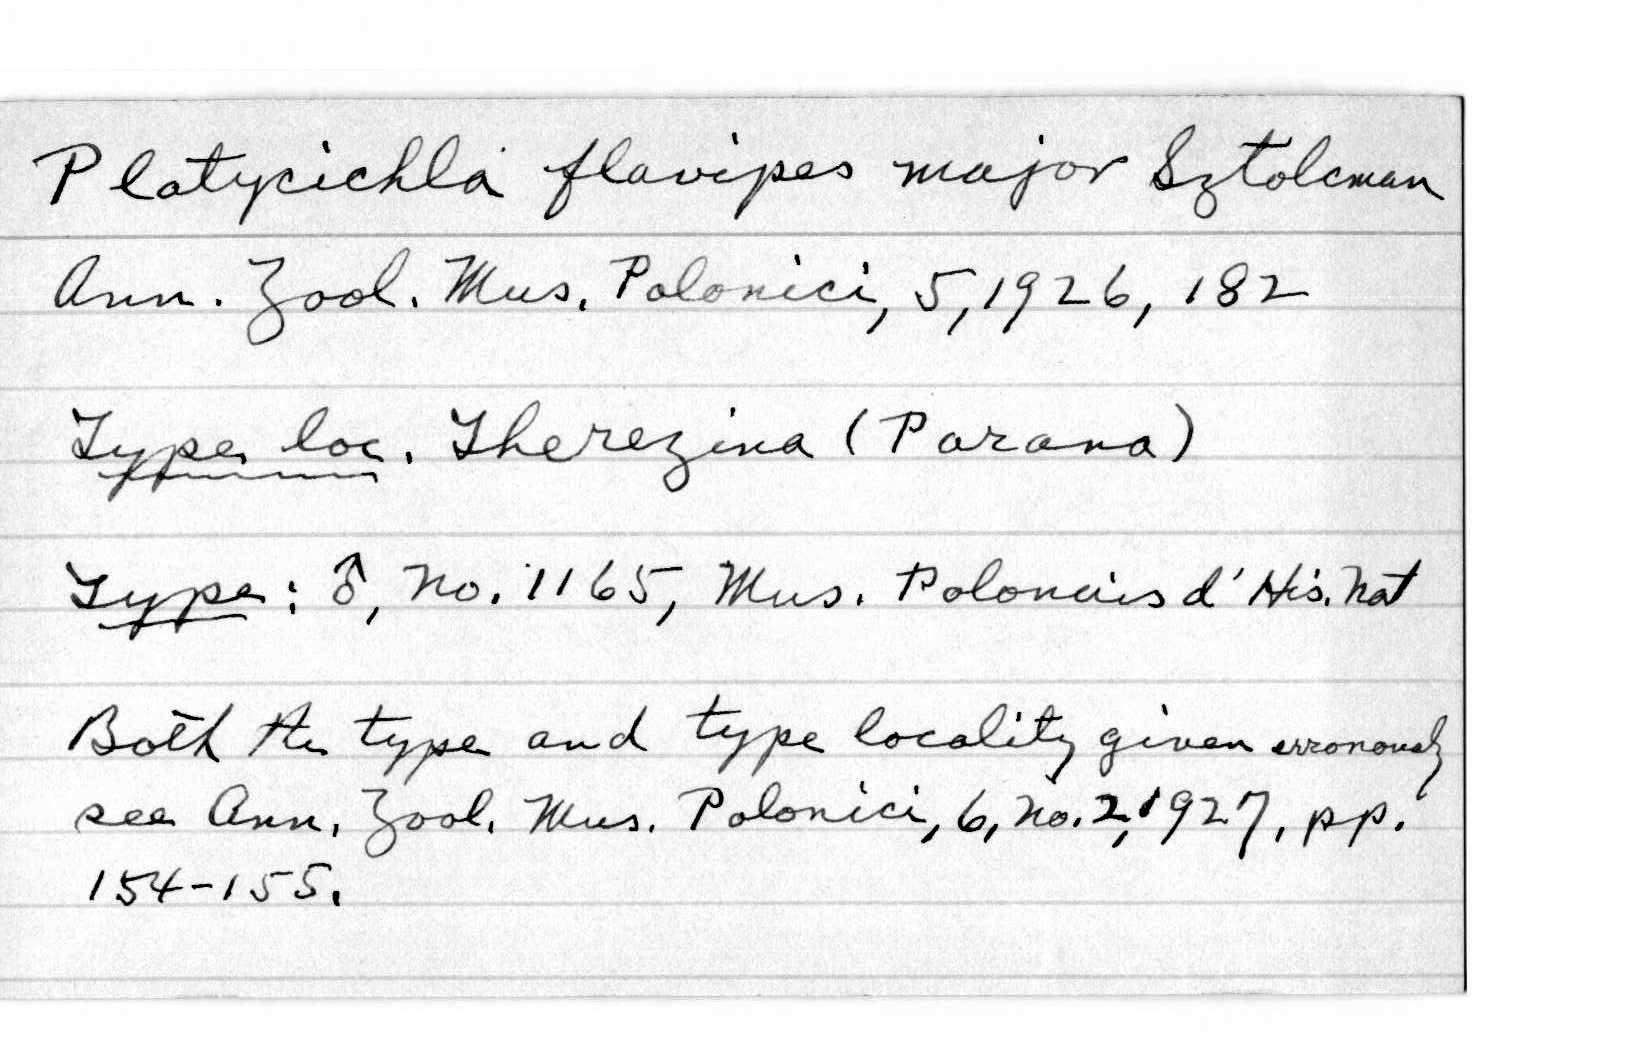 Platycichla flavipes major Sztolcman
Ann. Zool. Mus. Polonici, 5, 1926, 182
Type loc. Therezina (Parana)
Type: ♂, No. 1165, Mus. Polonais d'His. Nat
Both the type and type locality given erronously
see Ann. Zool. Mus. Polonici, 6, No. 2, 1927, pp.
154-155.